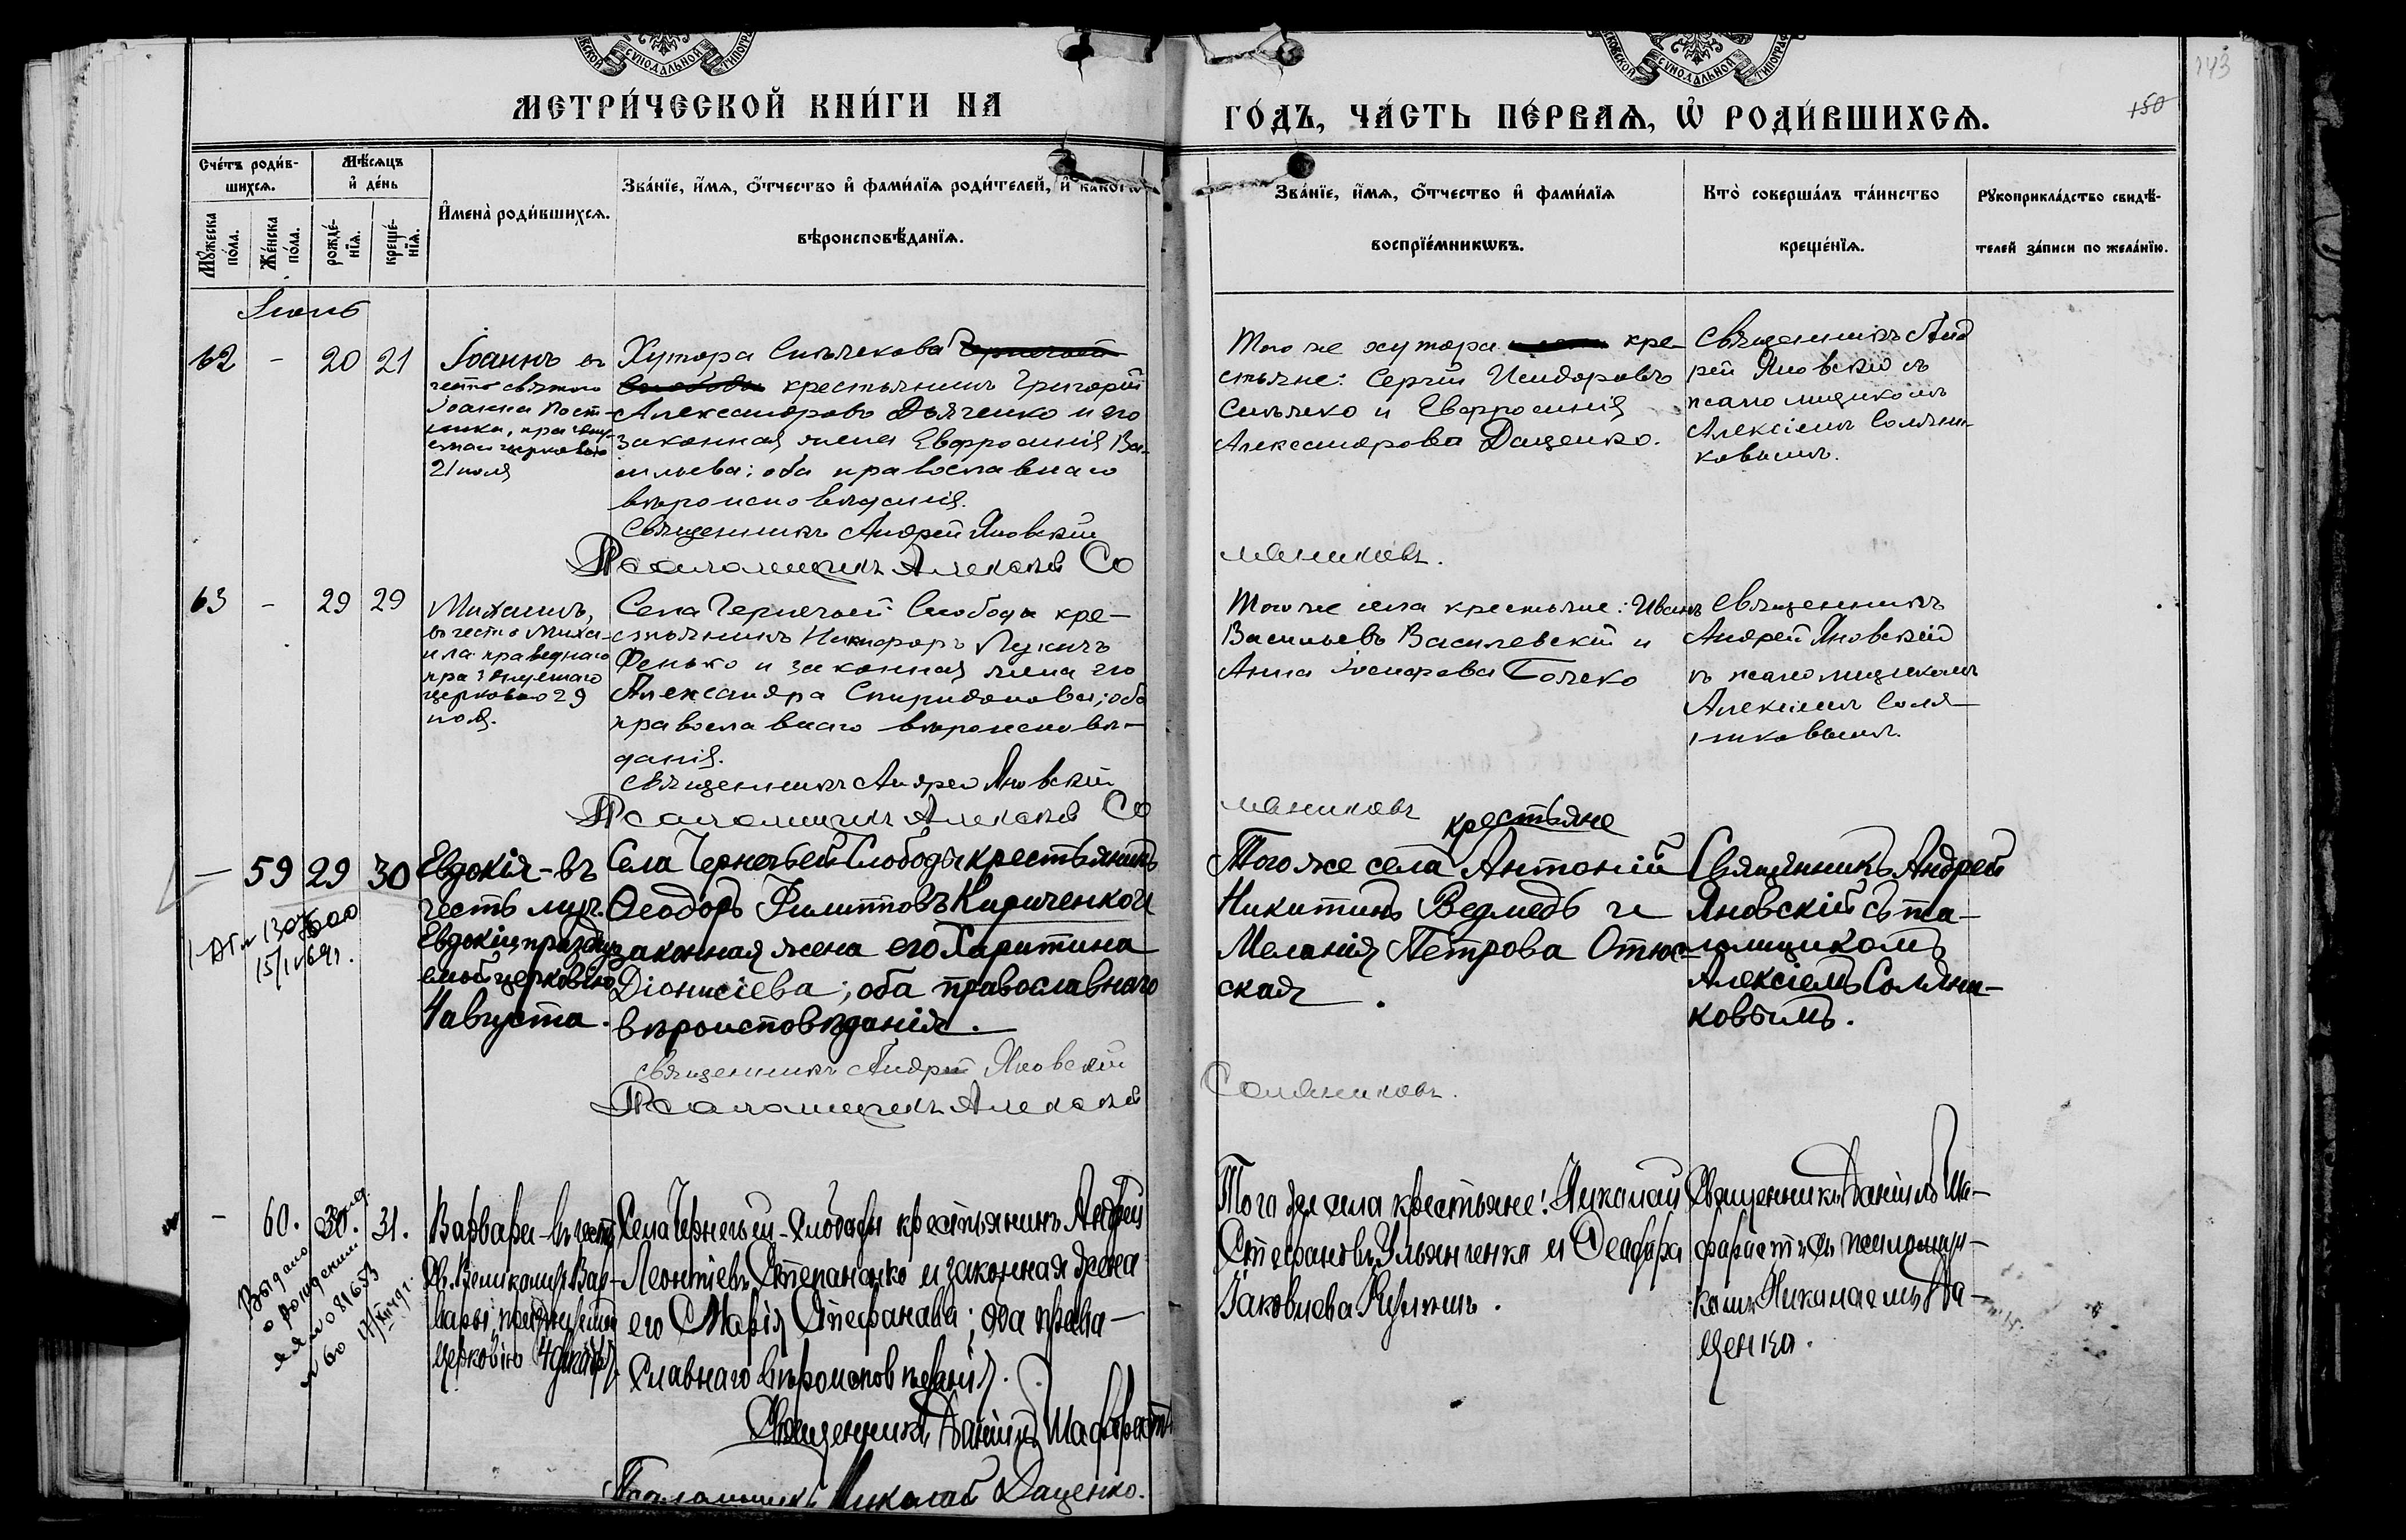 МЕТРИ́ЧЕСКОЙ КНИ́ГИ НА
ГО́ДЪ, ЧА́СТЬ ПЕ́РВАЯ, Ѡ҆ РОДИ́ВШИХСЯ.
143
150
Сче́тъ роди́в-
шихся.
Мѣ́сяцъ
и҆ де́нь
Му́жеска
по́ла.
Же́нска
по́ла.
рожде́-
нїя.
креще́-
нїя.
И҆мена̀ роди́вшихся.
Зва́нїе, и҆́мя, ѻ҆́тчество и҆ фами́лїя роди́телей, и҆ какогѡ
вѣроисповѣ́данїя.
Зва́нїе, и҆́мя, ѻ҆́тчество и҆ фами́лїя
воспрїе́мникѡвъ.
Кто̀ соверша́лъ та́инство
креще́нїя.
Рукоприкла́дство свидѣ́-
телей за́писи по жела́нїю.
Іюль
62 - 20 21
Іоаннъ въ
честь святого
Іоанна Пост-
ника,
21 іюля
Хутора Сипякова
крестьянинъ Григорій
Александровъ Дьяченко и его
законная жена Евфросинія Ва-
сильева; оба православнаго
вѣроисповѣданія.
Священникъ Андрей Яновскій
Псаломщикъ Алексѣй Со
Того же хутора кре-
стьяне: Сергій Исидоровъ
Сипяко и Евфросинія
Александрова Даценко.
Священникъ Анд
рей Яновскій съ
псаломщикомъ
Алексіемъ Соляни-
ковымъ.
ляниковъ.
63 - 29 29
Михаилъ,
въ честь Миха-
ила праведнаго
празднуемаго
церковью 29
іюля.
Села Чернечьей Слободы кре-
стьянинъ Никифоръ Лукичъ
Фенько и законная жена его
Александра Спиридонова; оба
православнаго вѣроисповѣ-
данія.
Священникъ Андрей Яновскій
Псаломщикъ Алексѣй Со
Того же села крестьяне: Иванъ
Васильевъ Василевскій и
Анна Іосифова
Священникъ
Андрей Яновскій
съ псаломщикомъ
Алексіемъ Соля-
никовымъ.
ляниковъ
— 59 29 30
Евдокія - въ
честь муч.
Евдокіи праздну-
емой церковью
4 августа.
Села Чернечьей Слободы крестьянинъ
Ѳеодоръ Филипповъ Кириченко и
законная жена его Харитина
Діонисіева; оба православнаго
вѣроисповѣданія.
Священникъ Андрей Яновскій
Псаломщикъ Алексѣй
крестьяне
Того же села Антоній
Никитинъ Ведмедь и
Меланія Петрова Отюс-
ская.
Священникъ Андрей
Яновскій съ пса-
ломщикомъ
Алексіемъ Соляни-
ковымъ.
Соляниковъ.
- 60. 30. 31.
Выдано
о рождении
Варвара - въ честь
Св. Великомуч. Вар-
вары, празднуемой
церковію 4 декабря
Села Чернечьей-Слободы крестьянинъ Андрей
Леонтіевъ Степаненко и законная жена
его Марія Стефанова; оба право-
славнаго вѣроисповѣданія.
Священникъ Даніилъ Шафорастъ
Псаломщикъ Николай Даценко.
Того же села крестьяне: Николай
Стефановъ Ульянченко и Ѳеодора
Іаковлева Кулишъ.
Священникъ Даніилъ Ша-
форастъ съ псаломщи-
комъ Николаемъ Да-
ценко.